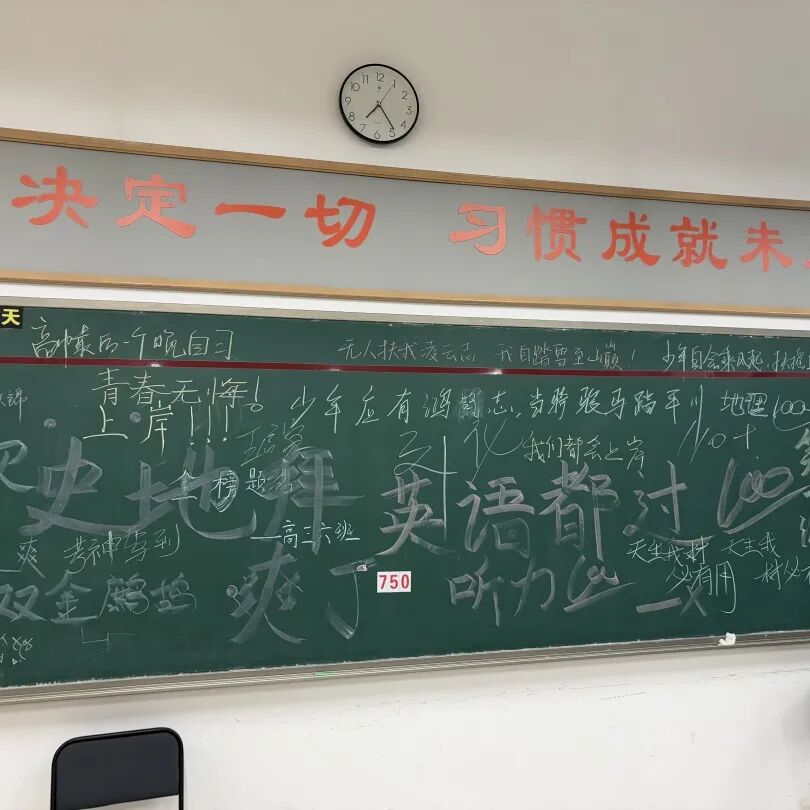 决定一切 习惯成就未
天
高中最后一个晚自习
无人扶我凌云志 我自踏雪至山巅！
少年自会乘风起，扶摇
青春无悔！
少年应有鸿鹄志，当骑骏马踏平川
地理100
上岸!!!
我们都会上岸
史地
金榜题名
英语都过100
高三六班
爽
考神写到
天生我材必有用
天生我材必
双金
爽了
750
听力